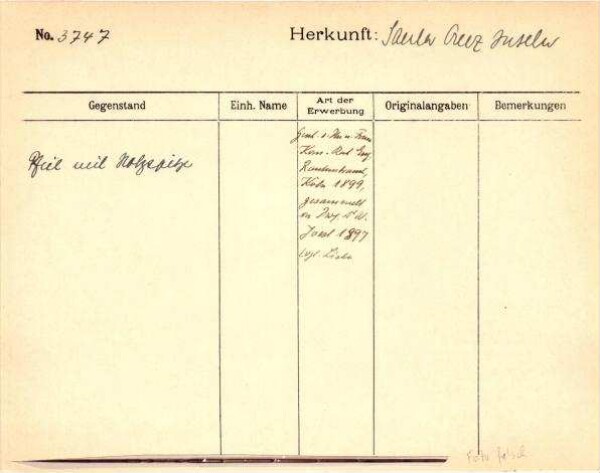 No. 3747
Herkunft: Santa Cruz Inseln
Gegenstand
Einh. Name
Art der
Erwerbung
Originalangaben
Bemerkungen
Pfeil mit Holzspitze
Gesch. v. Hrn u. Frau
Kom. Rat Eug.
Rautenstrauch,
Köln 1899,
gesammelt
von W.
Joest 1897
vgl. Liste
Foto